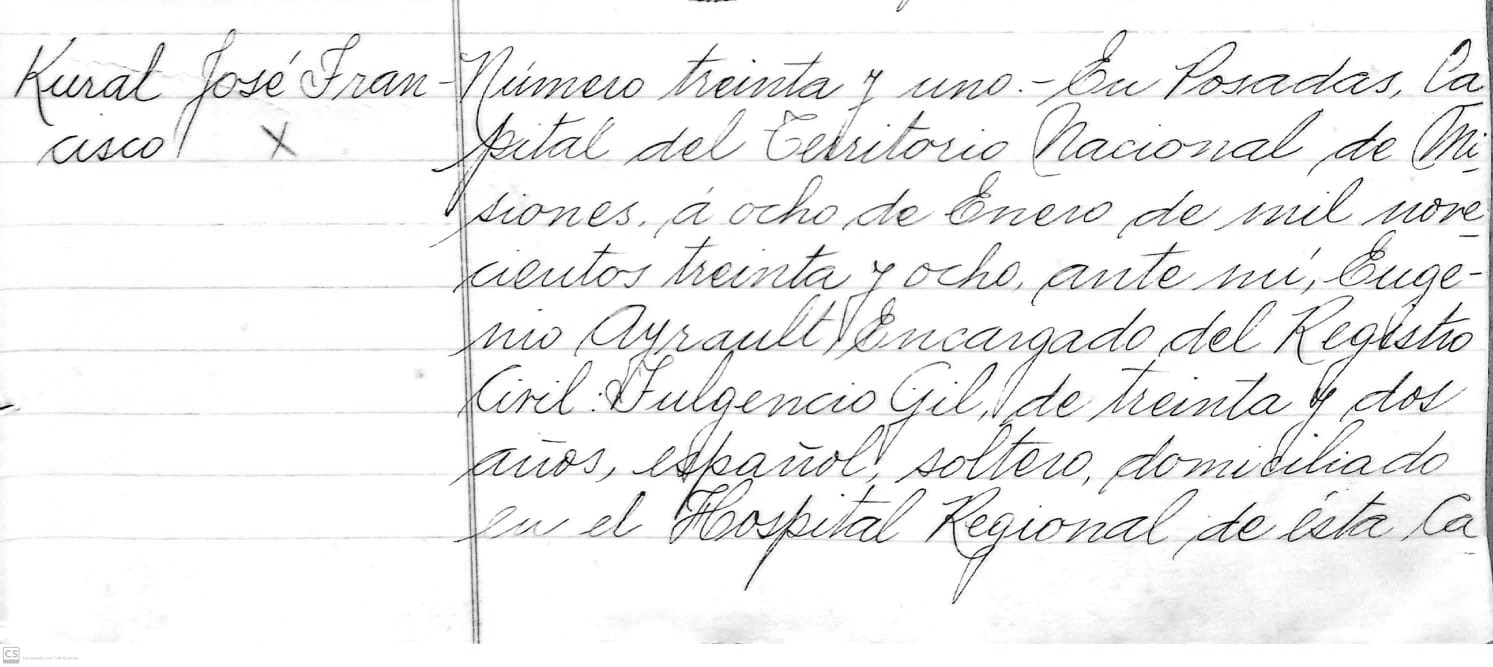 Kural José Fran-
cisco X
Número treinta y uno.- En Posadas, Ca
pital del Territorio Nacional de Mi-
siones, á ocho de Enero de mil nove-
cientos treinta y ocho, ante mí, Euge-
nio Ayrault, Encargado del Registro
Civil: Fulgencio Gil, de treinta y dos
años, español, soltero, domiciliado
en el Hospital Regional de ésta Ca-
CS